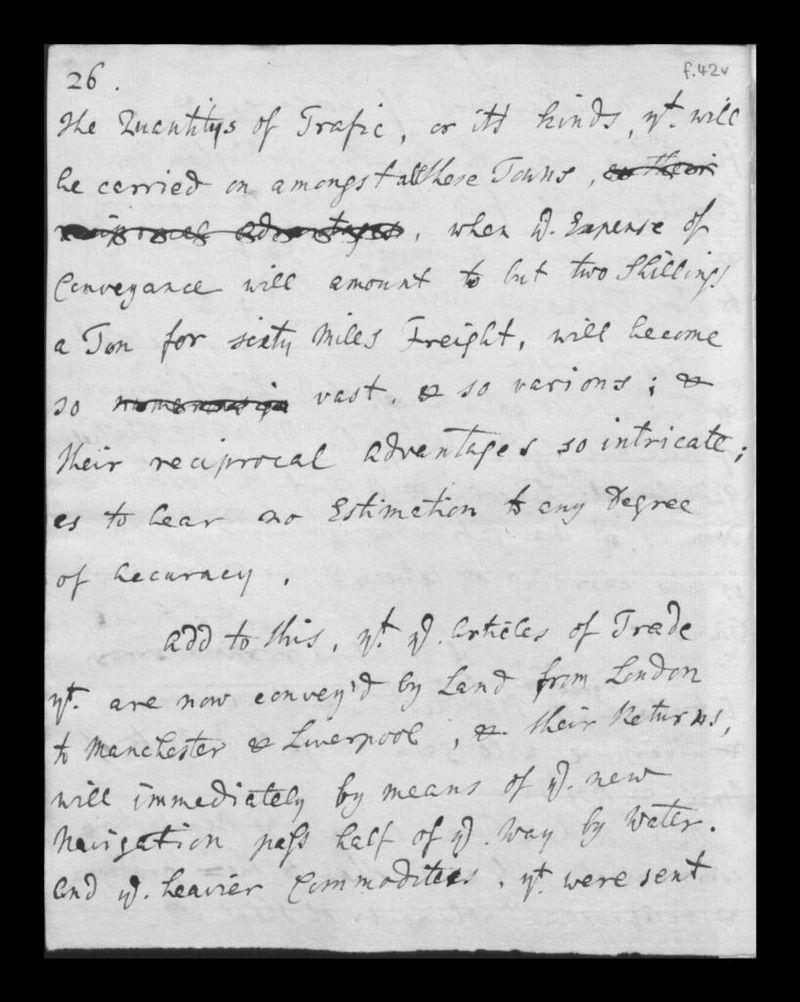 26.
f.42v
The Quantitys of Trafic, or it's kinds, yt. will
be carried on amongst all these Towns, or their
reciprocal advantages, when ye. Expense of
Conveyance will amount to but two Shillings
a Ton for sixty Miles Freight, will become
so vast, & so various; &
their reciprocal advantages so intricate;
as to bear no Estimation to any Degree
of Accuracy.
Add to this, yt. ye. Articles of Trade
yt. are now convey'd by Land from London
to Manchester & Liverpool, & their Returns,
will immediately by means of ye. new
Navigation pass half of ye. Way by Water.
And ye. heavier Commodities, yt. were sent